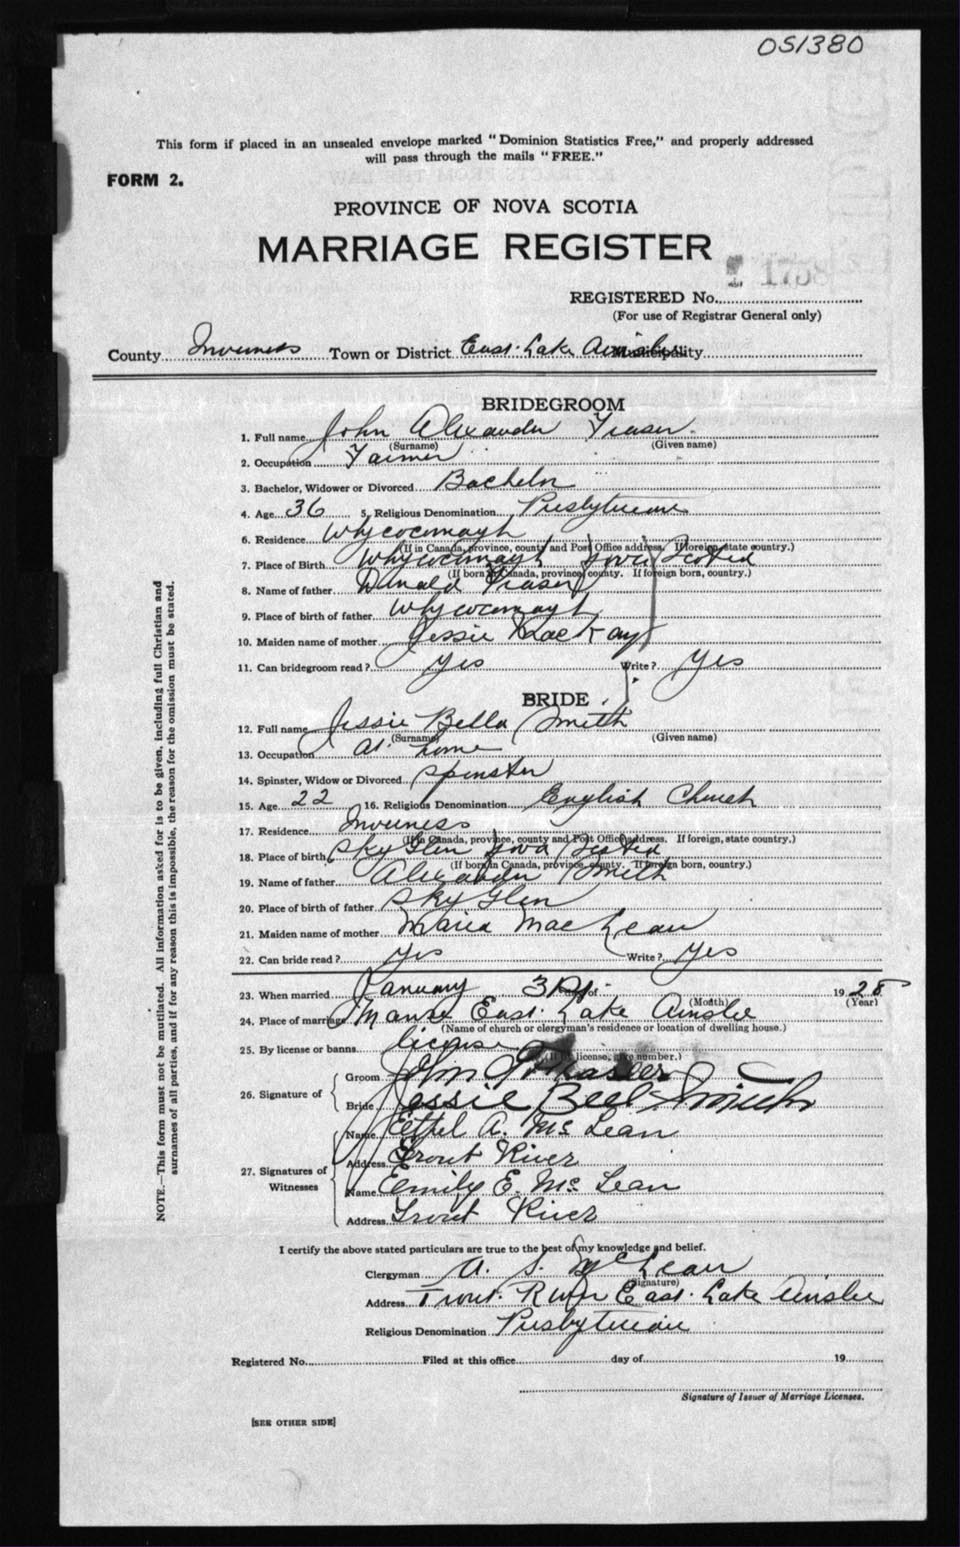 OS1380
This form if placed in an unsealed envelope marked "Dominion Statistics Free," and properly addressed
will pass through the mails "FREE."
FORM 2.
PROVINCE OF NOVA SCOTIA
MARRIAGE REGISTER
1758
REGISTERED No.
(For use of Registrar General only)
County Inverness Town or District East Lake Ainslie Municipality
BRIDEGROOM
1. Full name John Alexander Fraser
(Surname) (Given name)
2. Occupation Farmer
3. Bachelor, Widower or Divorced Bachelor
4. Age 36 5. Religious Denomination Presbyterian
6. Residence Whycocomagh
(If in Canada, province, county and Post Office address. If foreign, state country.)
7. Place of Birth Whycocomagh Nova Scotia
(If born in Canada, province, county. If foreign born, country.)
8. Name of father Donald Fraser
9. Place of birth of father Whycocomagh
10. Maiden name of mother Jessie MacKay
11. Can bridegroom read? Yes Write? Yes
BRIDE
12. Full name Jessie Bella Smith
(Surname) (Given name)
13. Occupation At home
14. Spinster, Widow or Divorced Spinster
15. Age 22 16. Religious Denomination English Church
17. Residence Inverness
(If in Canada, province, county and Post Office address. If foreign, state country.)
18. Place of birth Sky Glen Nova Scotia
(If born in Canada, province, county. If foreign born, country.)
19. Name of father Alexander Smith
20. Place of birth of father Sky Glen
21. Maiden name of mother Maria MacLean
22. Can bride read? Yes Write? Yes
23. When married January 3rd of 1928
(Month) (Year)
24. Place of marriage Manse East Lake Ainslie
(Name of church or clergyman's residence or location of dwelling house.)
25. By license or banns license
(If by license, give number.)
26. Signature of Groom John A Fraser
Bride Jessie Bell Smith
27. Signatures of Witnesses Name Ethel A. McLean
Address Trout River
Name Emily E. McLean
Address Trout River
I certify the above stated particulars are true to the best of my knowledge and belief.
Clergyman A. S. McLean
(Signature)
Address Trout River East Lake Ainslie
Religious Denomination Presbyterian
Registered No. Filed at this office day of 19
Signature of Issuer of Marriage Licenses.
[SEE OTHER SIDE]
NOTE.—This form must not be mutilated. All information asked for is to be given, including full Christian and
surnames of all parties, and if for any reason this is impossible, the reason for the omission must be stated.